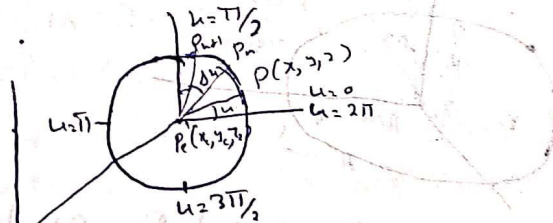 u=π/2
Pn+1
Pn
Δu
P(x,y,z)
u=0
u=π
u
u=2π
Pc(xc,yc,zc)
u=3π/2